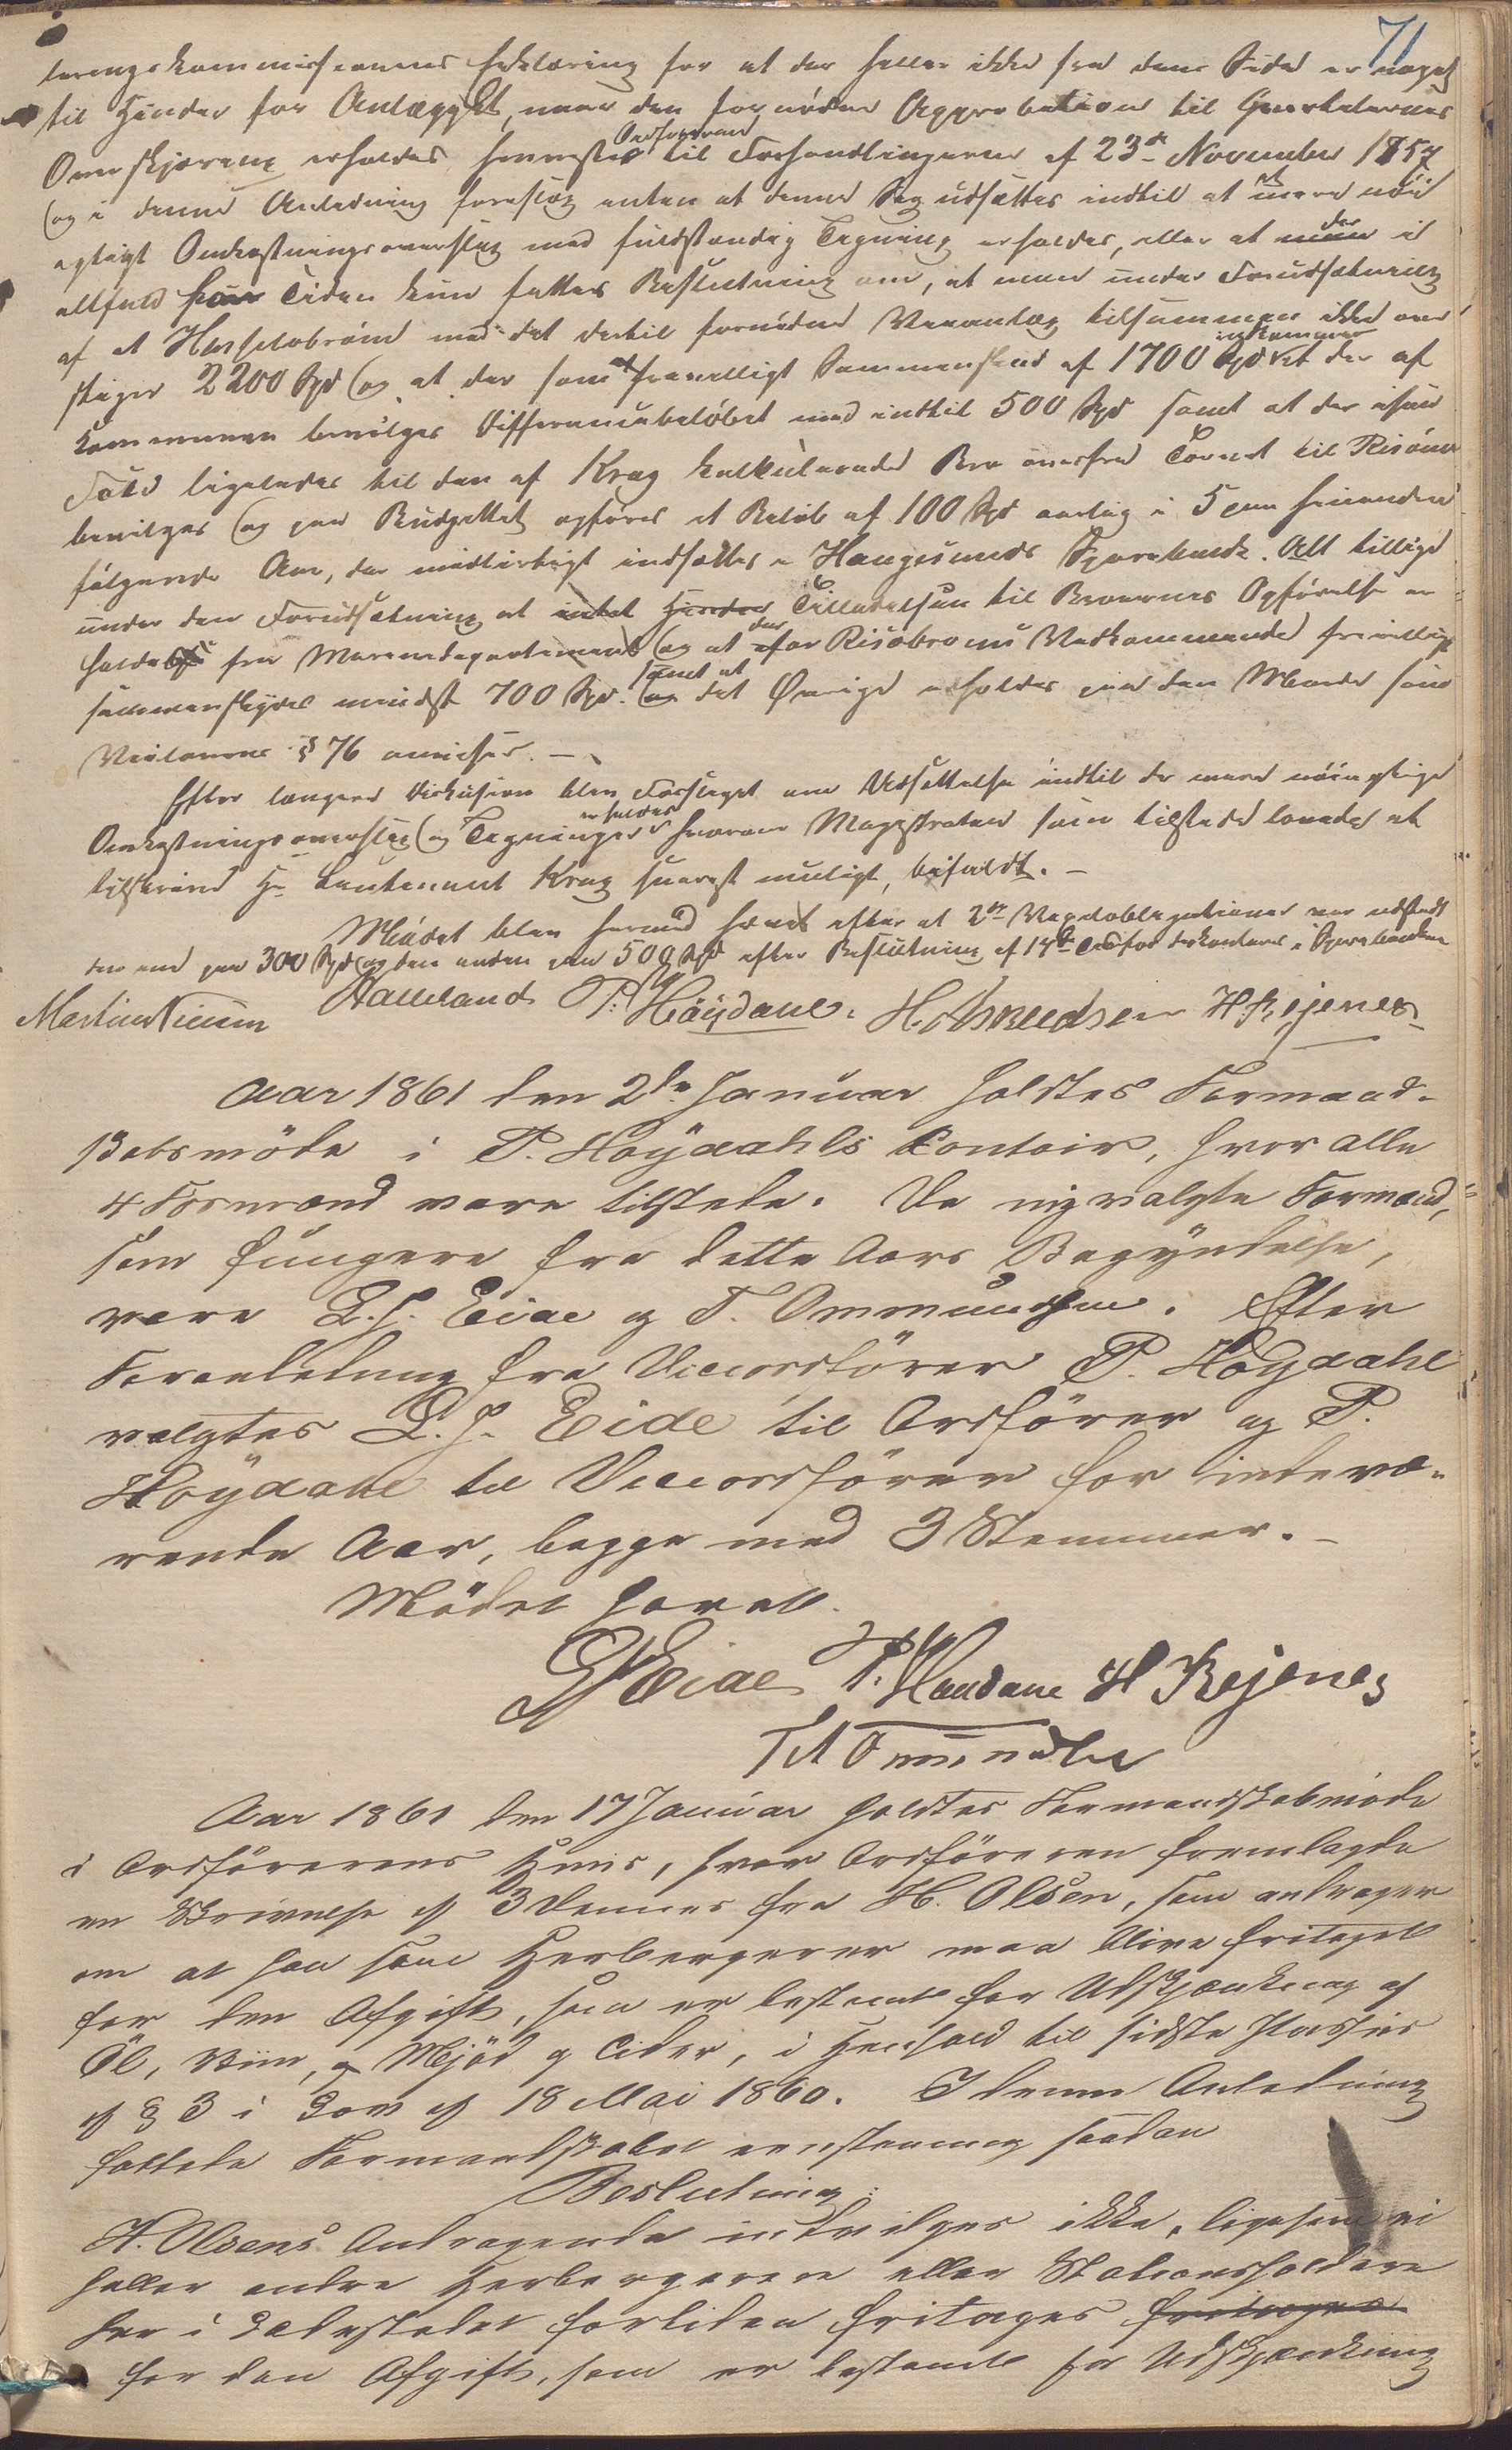 71
leringskommissionens Erklæring for at der heller ikke fra dens Side er noget
til Hinder for Anlægget, naar den fornødne Approbation til Qvartalernes
Overskjæring erholdes henviste Ordføreren til Forhandlingerne af 23de November 1857
og i denne Anledning foreslog enten at denne Sag udsættes indtil at et mere nøi
agtigt Omkostningsoverslag med fuldstændig Tegning erholdes, eller at der i
altfald for Tiden kun fattes Beslutning om, at man under Forudsætning
af at Hasseløbroen med det dertil fornødne Veianlæg tilsammen ikke over
stiger 2200 Spd og at der som et frivilligt Sammenskud af 1700 Spd indkommer at der af
Kommunen bevilges Differencebeløbet med indtil 500 Spd samt at der isaa
Fald ligeledes til den af Krag kalkulerede Bro overfra Torvet til Risøen
bevilges og paa Budgettet opføres et Beløb af 100 Spd aarlig i 5 paa hinanden
følgende Aar, der midlertidigt indsættes i Haugesunds Sparebank. Alt tillige
under den Forudsætning at intet Hinder Tilladelsen til Broernes Opførelse er
holdes fra Marinedepartement og at der for Risøbroens Vedkommende frivilligt
sammenskydes mindst 700 Spd. samt at det Øvrige erholdes paa den Maade som
Veilovens § 76 anviser. —
Efter længere Diskusion blev Forslaget om Udsættelse indtil de mere nøiagtige
Omkostningsoverslag og Tegninger erholdes hvorom Magistraten som tilstede lovede at
tilskrive Hr Leutenant Krag snarest muligt, bifaldt. —
Mødet blev hermed hævet efter at 2de Vexelobligationer var udstedt
den ene paa 300 Spd og den anden paa 500 Spd efter Beslutning af 14de for diskonteres i Sparebanken
Martinus Vicum Valleland P: Høÿdahl. H. Asbeedsen H. Rejenes
Aar 1861 den 2de Januar holdtes Formand-
skabsmöde i P. Hoÿdahls Contoir, hvor alle
4 Formænd vare tilstede. De nyvalgte Formænd,
som fungere fra dette Aars Begÿndelse,
vare L. J. Eide og T. Ommundsen. Efter
Foranledning fra Viceordförer P. Hoÿdahl
valgtes L. J. Eide til Ordförer og P.
Hoÿdahl til Viceordförer for indevæ-
rende Aar, begge med 3 Stemmer. —
Mödet hævet.
LJ Eide P. Høidahl H Rejenes
T A Ommundsen
Aar 1861 den 17 Januar holdtes Formandskabmöde
i Ordförerens Huus, hvor Ordföreren fremlagde
en Skrivelse af 3 dennes fra H. Olsen, som andrager
om at han som Herbergerer maa blive fritaget
for den Afgift, som er bestemt for Udskjænkning af
Öl, Viin, og Mjöd og Cider, i Henhold til sidste Passus
af § 3 i Lov af 18 Mai 1860. I denne Anledning
fattede Formandskabet eenstemmig saadan
Beslutning:
H. Olsens Andragende indvilges ikke, ligesom ei
heller andre Herbergerere eller Stationsholdere
her i Ladestedet fortiden fritages fritages
for den Afgift, som er bestemt for Udskjænkning